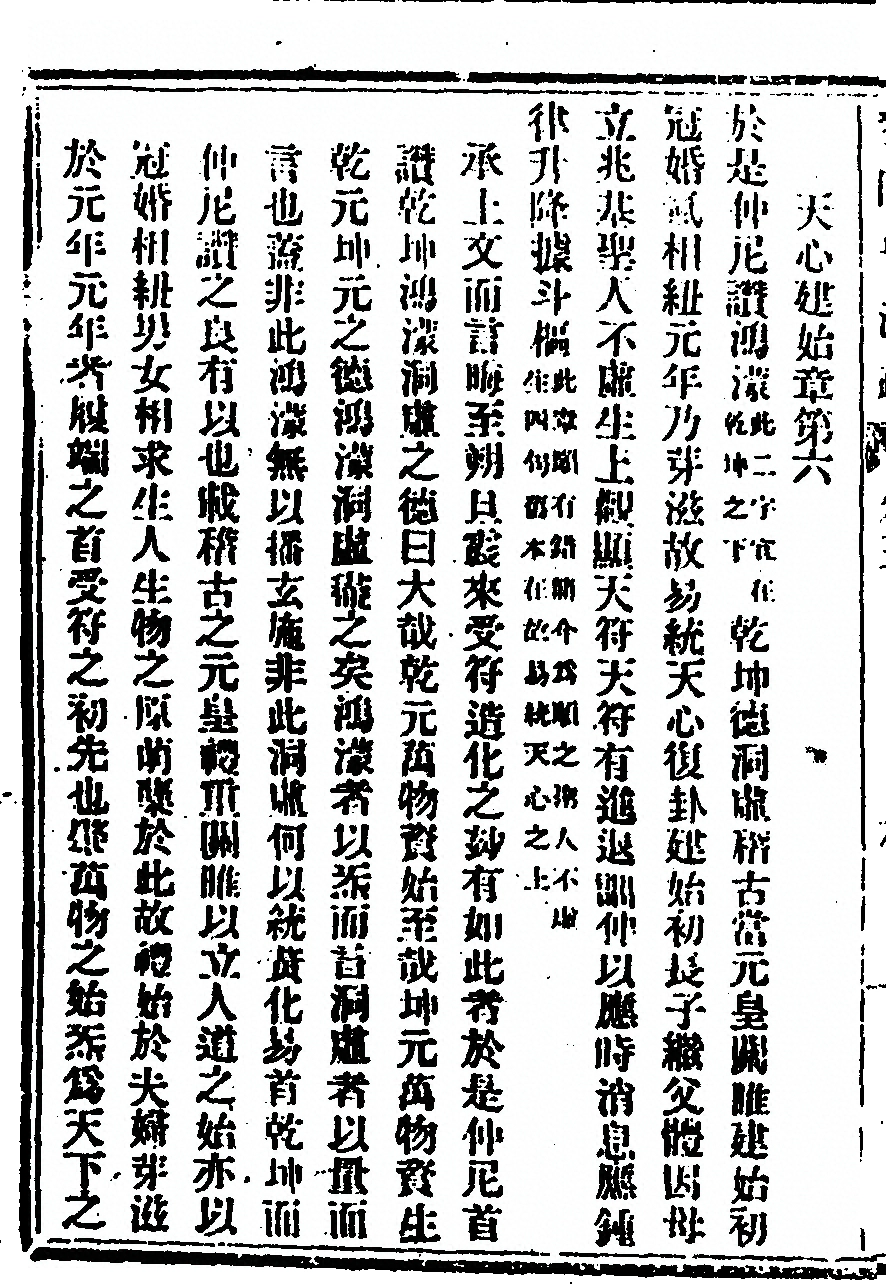 天心建始章第六
於是仲尼讚鴻濛此二字宜在乾坤之下乾坤德洞虛稽古當元皇關雎建始初
冠婚炁相紐元年乃芽滋故易統天心復卦建始初長子繼父體因母
立兆基聖人不虛生上觀顯天符天符有進退詘伸以應時消息應鍾
律升降據斗樞此章舊有錯簡今為順之聖人不虛生四句舊本在故易統天心之上
承上文而言晦至朔旦震來受符造化之妙有如此者於是仲尼首
讚乾坤鴻濛洞虛之德曰大哉乾元萬物資始至哉坤元萬物資生
乾元坤元之德鴻濛洞虛之矣鴻濛者以炁而言洞虛者以量而
言也蓋非此鴻濛無以播玄施非此洞虛何以統黃化易首乾坤而
仲尼讚之良有以也載稽古之元皇禮重關雎以立人道之始亦以
冠婚相紐男女相求生人生物之原萌蘗於此故禮始於夫婦芽滋
於元年元年者履端之首受符之初先也肇萬物之始炁為天下之